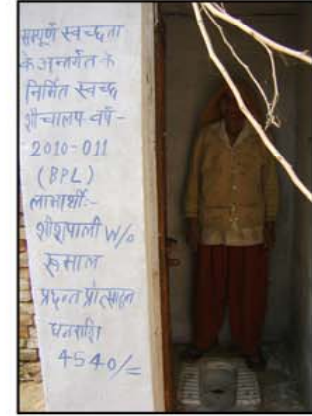 सम्पूर्ण स्वच्छता
के अन्तर्गत के
निर्मित स्वच्छ
शौचालय वर्ष-
2010-011
(BPL)
लाभार्थी:-
शीशपाली W/o
रूमाल
प्रदन्त प्रोत्साहन
धनराशि
4540/=